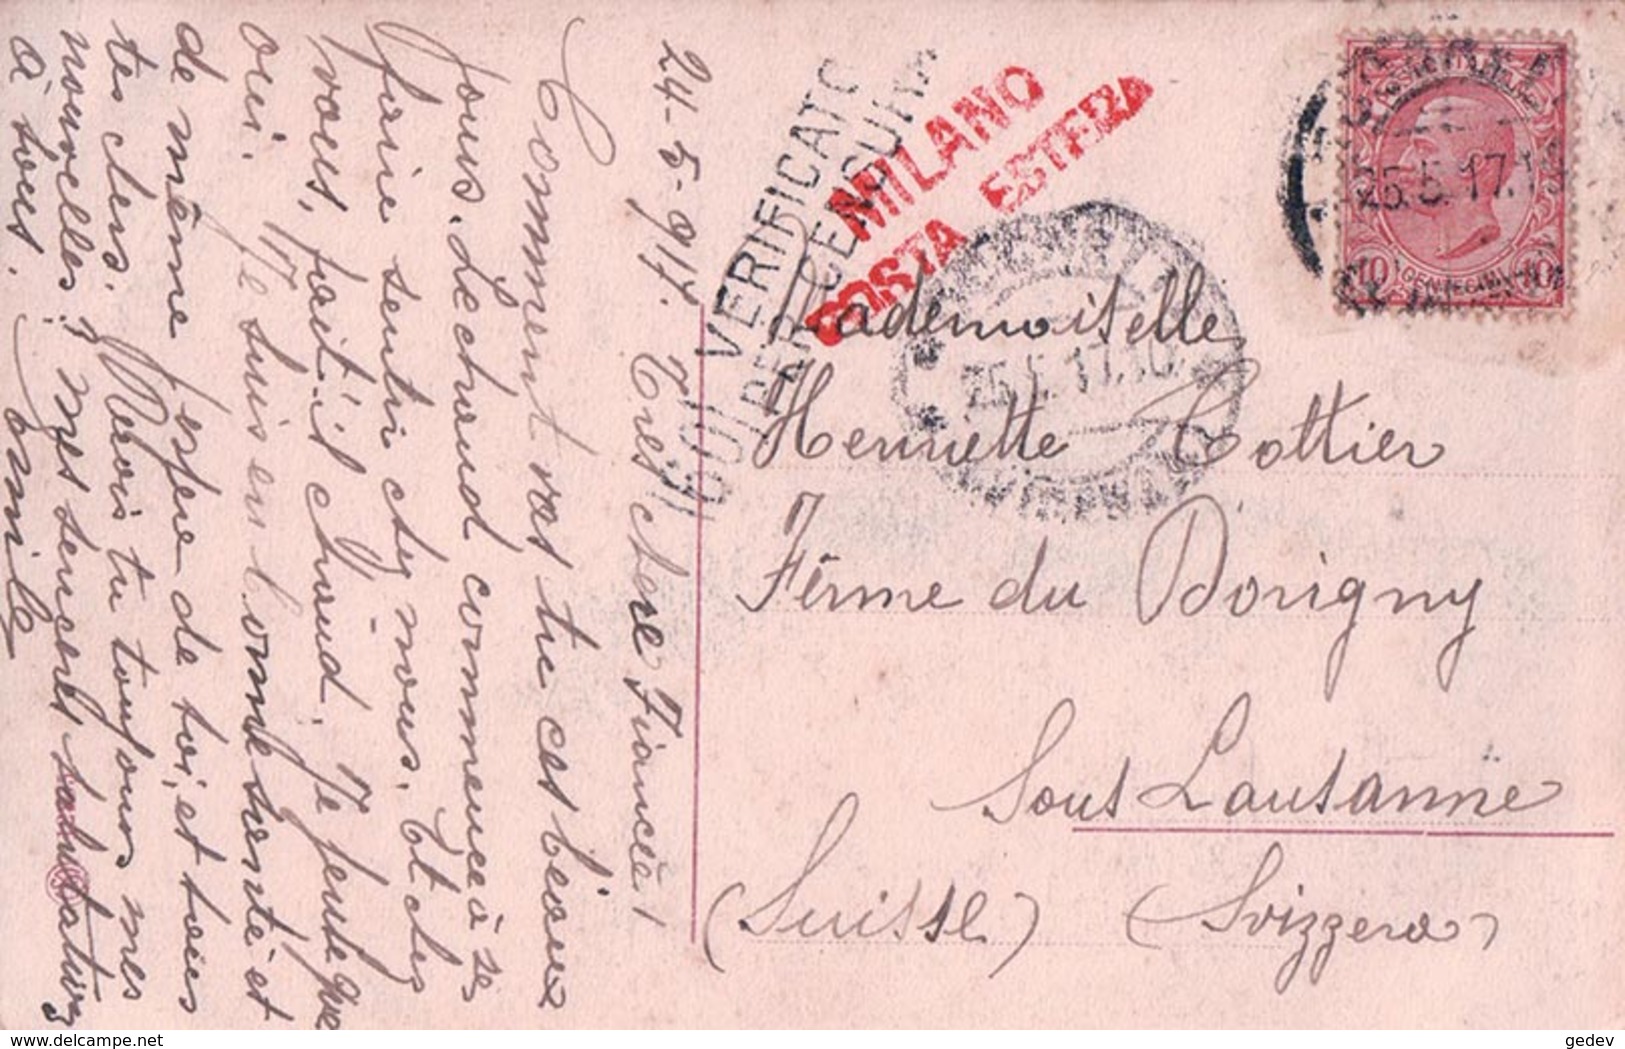 24-5-917. Tres chere Fiancée!
Comment vas tu ces beaux
jours. Le chaud commence à se
faire sentir chez nous. Et chez
vous, fait-il chaud. Je pense que
oui. Je suis en bonne santé et
de même j'espère de toi, et tous
tes chers. Reçois tu toujours mes
nouvelles? mes sinceres salutations
à tous.
VERIFICATO
PER CENSURA
MILANO
POSTA ESTERA
25.5.17.1
10 CENTESIMI 10
17.10
Mademoiselle
Henriette Cottier
Ferme du Dorigny
Sous Lausanne
(Suisse) (Svizzera)
gedev
delcampe.net